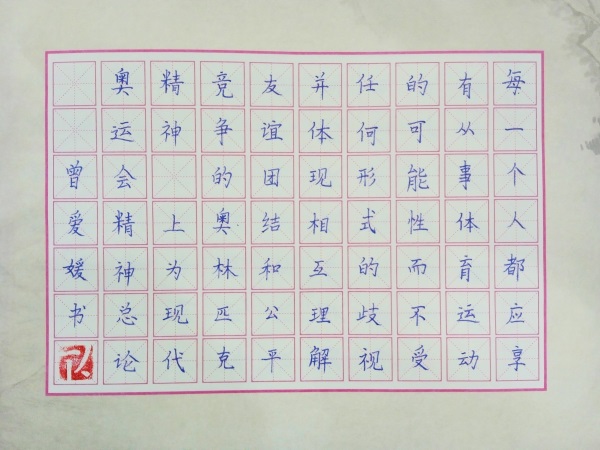 每一个人都应享
有从事体育运动
的可能性而不受
任何形式的歧视
并体现相互理解
友谊团结和公平
竞争的奥林匹克
精神 上为现代
奥运会精神总论
曾爱媛书